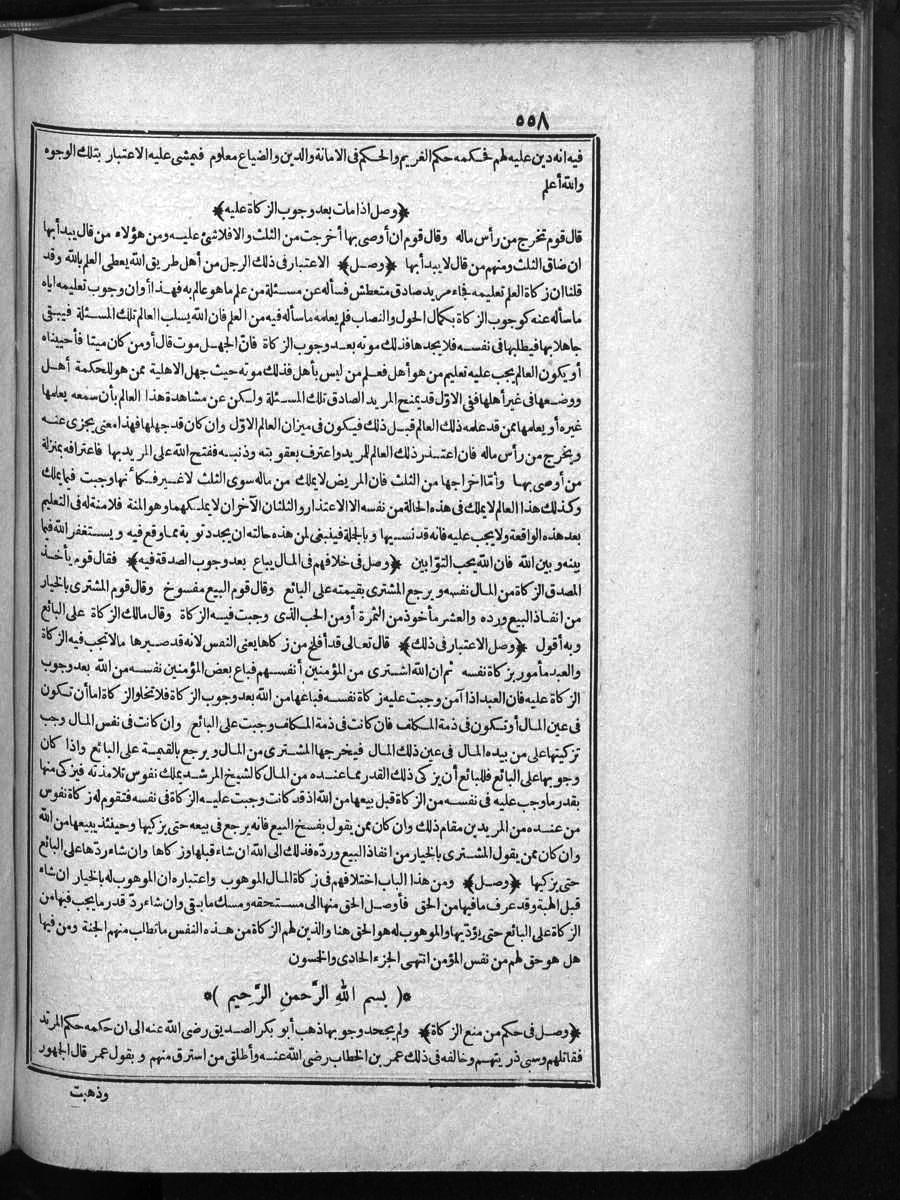 ٥٥٨
فيه انه دين عليه لهم فحكمه حكم الغريم والحكم فى الامانة والدين والضياع معلوم فيمشى عليه الاعتبار بتلك الوجوه
والله أعلم
﴿وصل اذا مات بعد وجوب الزكاة عليه﴾
قال قوم تخرج من رأس ماله وقال قوم ان أوصى بها أخرجت من الثلث والا فلاشئ عليه ومن هؤلاء من قال يبدأ بها
ان ضاق الثلث ومنهم من قال لا يبدأ بها ﴿وصل﴾ الاعتبار فى ذلك الرجل من أهل طريق الله يعطى العلم بالله وقد
قلنا ان زكاة العلم تعليمه فجاء مريد صادق متعطش فسأله عن مسئلة من علم ما هو عالم به فهذا أوان وجوب تعليمه اياه
ما سأله عنه كوجوب الزكاة بكمال الحول والنصاب فلم يعلمه ما سأله فيه من العلم فان الله يسلب العالم تلك المسئلة فيبقى
جاهلا بها فيطلبها فى نفسه فلا يجدها فذلك موته بعد وجوب الزكاة فان الجهل موت قال أومن كان ميتا فأحييناه
أو يكون العالم يجب عليه تعليم من هو أهل فعلم من ليس بأهل فذلك موته حيث جهل الاهلية ممن هو للحكمة أهل
ووضعها فى غير أهلها ففى الاول قد يمنح المريد الصادق تلك المسئلة ولكن عن مشاهدة هذا العالم بأن سمعه يعلمها
غيره أو يعلمها ممن قد علمه ذلك العالم قبل ذلك فيكون فى ميزان العالم الاول وان كان قد جهلها فهذا معنى يجزى عنه
ويخرج من رأس ماله فان اعتذر ذلك العالم للمريد واعترف بعقوبته وذنبه ففتح الله على المريد بها فاعترافه بمنزلة
من أوصى بها وأما اخراجها من الثلث فان المريض لا يملك من ماله سوى الثلث لا غير فكأنها وجبت فيما يملك
وكذلك هذا العالم لا يملك فى هذه الحالة من نفسه الا الاعتذار والثلثان الآخران لا يملكهما وهو المنة فلا منة له فى التعليم
بعد هذه الواقعة ولا يجب عليه فانه قد نسيها وبالجلة فينبغى لمن هذه حالته ان يجدد توبة مما وقع فيه ويستغفر الله فيما
بينه وبين الله فان الله يحب التوابين ﴿وصل فى خلافهم فى المال يباع بعد وجوب الصدقة فيه﴾ فقال قوم يأخذ
المصدق الزكاة من المال نفسه ويرجع المشترى بقيمته على البائع وقال قوم البيع مفسوخ وقال قوم المشترى بالخيار
من انفاذ البيع ورده والعشر مأخوذ من الثمرة أو من الحب الذى وجبت فيه الزكاة وقال مالك الزكاة على البائع
وبه أقول ﴿وصل الاعتبار فى ذلك﴾ قال تعالى قد أفلح من زكاها يعنى النفس لانه قد صيرها مالا تجب فيه الزكاة
والعبد مأمور بزكاة نفسه ثم ان الله اشترى من المؤمنين أنفسهم فباع بعض المؤمنين نفسه من الله بعد وجوب
الزكاة عليه فان العبد اذا آمن وجبت عليه زكاة نفسه فباعها من الله بعد وجوب الزكاة فلا تخلو الزكاة اما أن تكون
فى عين المال أو تكون فى ذمة المكلف فان كانت فى ذمة المكلف وجبت على البائع وان كانت فى نفس المال وجب
تزكيتها على من بيده المال فى عين ذلك المال فيخرجها المشترى من المال ويرجع بالقيمة على البائع واذا كان
وجوبها على البائع فللبائع أن يزكى ذلك القدر مما عنده من المال كالشيخ المرشد يملك نفوس تلامذته فيزكى منها
بقدر ما وجب عليه فى نفسه من الزكاة قبل بيعها من الله اذ قد كانت وجبت عليه الزكاة فى نفسه فتقوم له زكاة نفوس
من عنده من المريدين مقام ذلك وان كان ممن يقول بفسخ البيع فانه يرجع فى بيعه حتى يزكيها وحينئذ يبيعها من الله
وان كان ممن يقول المشترى بالخيار من انفاذ البيع ورده فذلك الى الله ان شاء قبلها وزكاها وان شاء ردها على البائع
حتى يزكيها ﴿وصل﴾ ومن هذا الباب اختلافهم فى زكاة المال الموهوب واعتباره ان الموهوب له بالخيار ان شاء
قبل الهبة وقد عرف ما فيها من الحق فأوصل الحق منها الى مستحقه ومسك ما بقى وان شاء رد قدر ما يجب فيها من
الزكاة على البائع حتى يؤديها والموهوب له هو الحق هنا والذين لهم الزكاة من هذه النفس ما تطلب منهم الجنة ومن فيها
هل هو حق لهم من نفس المؤمن انتهى الجزء الحادى والخسون
*( بسم الله الرَّحمنِ الرَّحيم )*
﴿وصل فى حكم من منع الزكاة﴾ ولم يجحد وجوبها ذهب أبو بكر الصديق رضى الله عنه الى ان حكمه حكم المرتد
فقاتلهم وسبى ذريتهم وخالفه فى ذلك عمر بن الخطاب رضى الله عنه وأطلق من استرق منهم وبقول عمر قال الجمهور
وذهبت